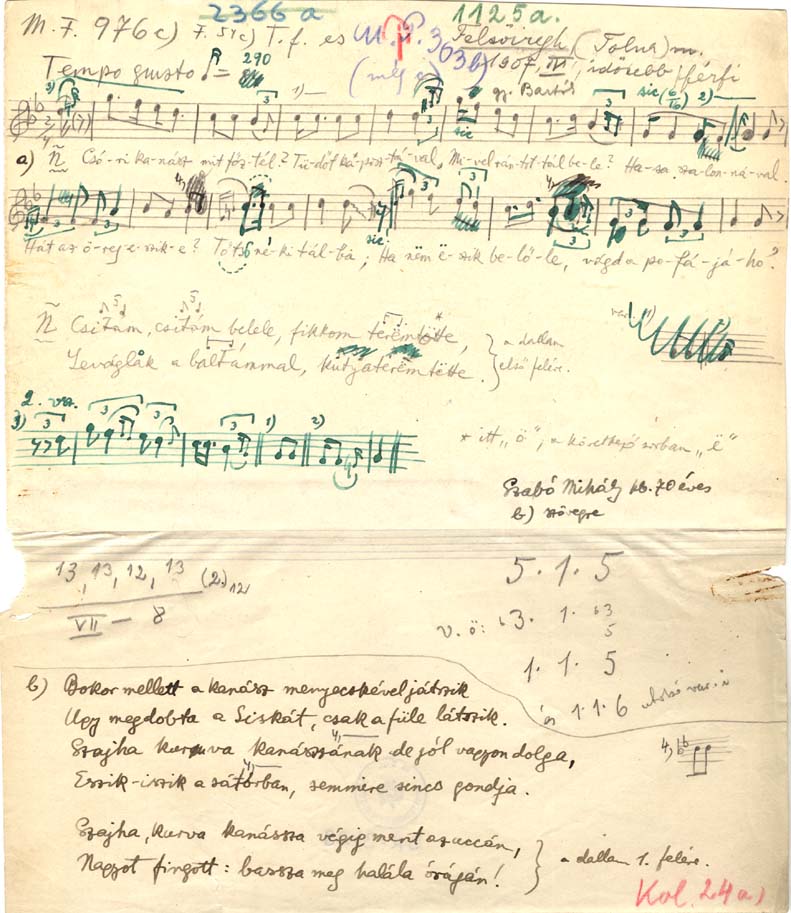 2366 a
1125a.
M. F. 976c) F. 51c) T. f. es M. F. 363b)
(még a)
Felsőiregh (Tolna) m.
1907. IV., idősebb férfi
gy. Bartók
Tempo giusto ♪ = 290
sic (6/16) 2)
3) 1) 3
sic
a) Ñ Csó-ri ka-nász mit főz-tél? Tü-dőt ká-posz-tá-val, Mi-vel rán-tot-tál be-le? Ha-sa sza-lon-ná-val.
4)
3 sic 3 3 3
Hát az ö-reg e-szik-e? Tölts né-ki tál-ba; Ha nëm ë-szik be-lő-le, vágd a po-fá-já-ho?
Ñ Csitám, csitám belele, fikkom teremtötte,
Leváglák a baltámmal, kutyateremtëtte.
a dallam
első felére.
var. 1)
2. vsz.
3) 3 3 3 3 1) 2)
* itt „ö”, a következő sorban „ë”
Szabó Mihály kb. 70 éves
b) szövegre
13, 13, 12, 13 (2.) 12
VII – 8
5. 1. 5
v. ö: ♭3. 1. ♭3
5
1. 1. 5
és 1. 1. 6 utolsó var. is
b) Bokor mellett a kanász menyecskével játszik
Ugy megdobta a Siskát, csak a füle látszik.
Szajha kurva kanászának de jól vagyon dolga,
4)
Eszik-iszik a sátorban, semmire sincs gondja.
4)
4)
Szajha, kurva kanásza végig ment az uccán,
Nagyot fingott: bassza meg halála óráján!
a dallam 1. felére.
Kol. 24a)